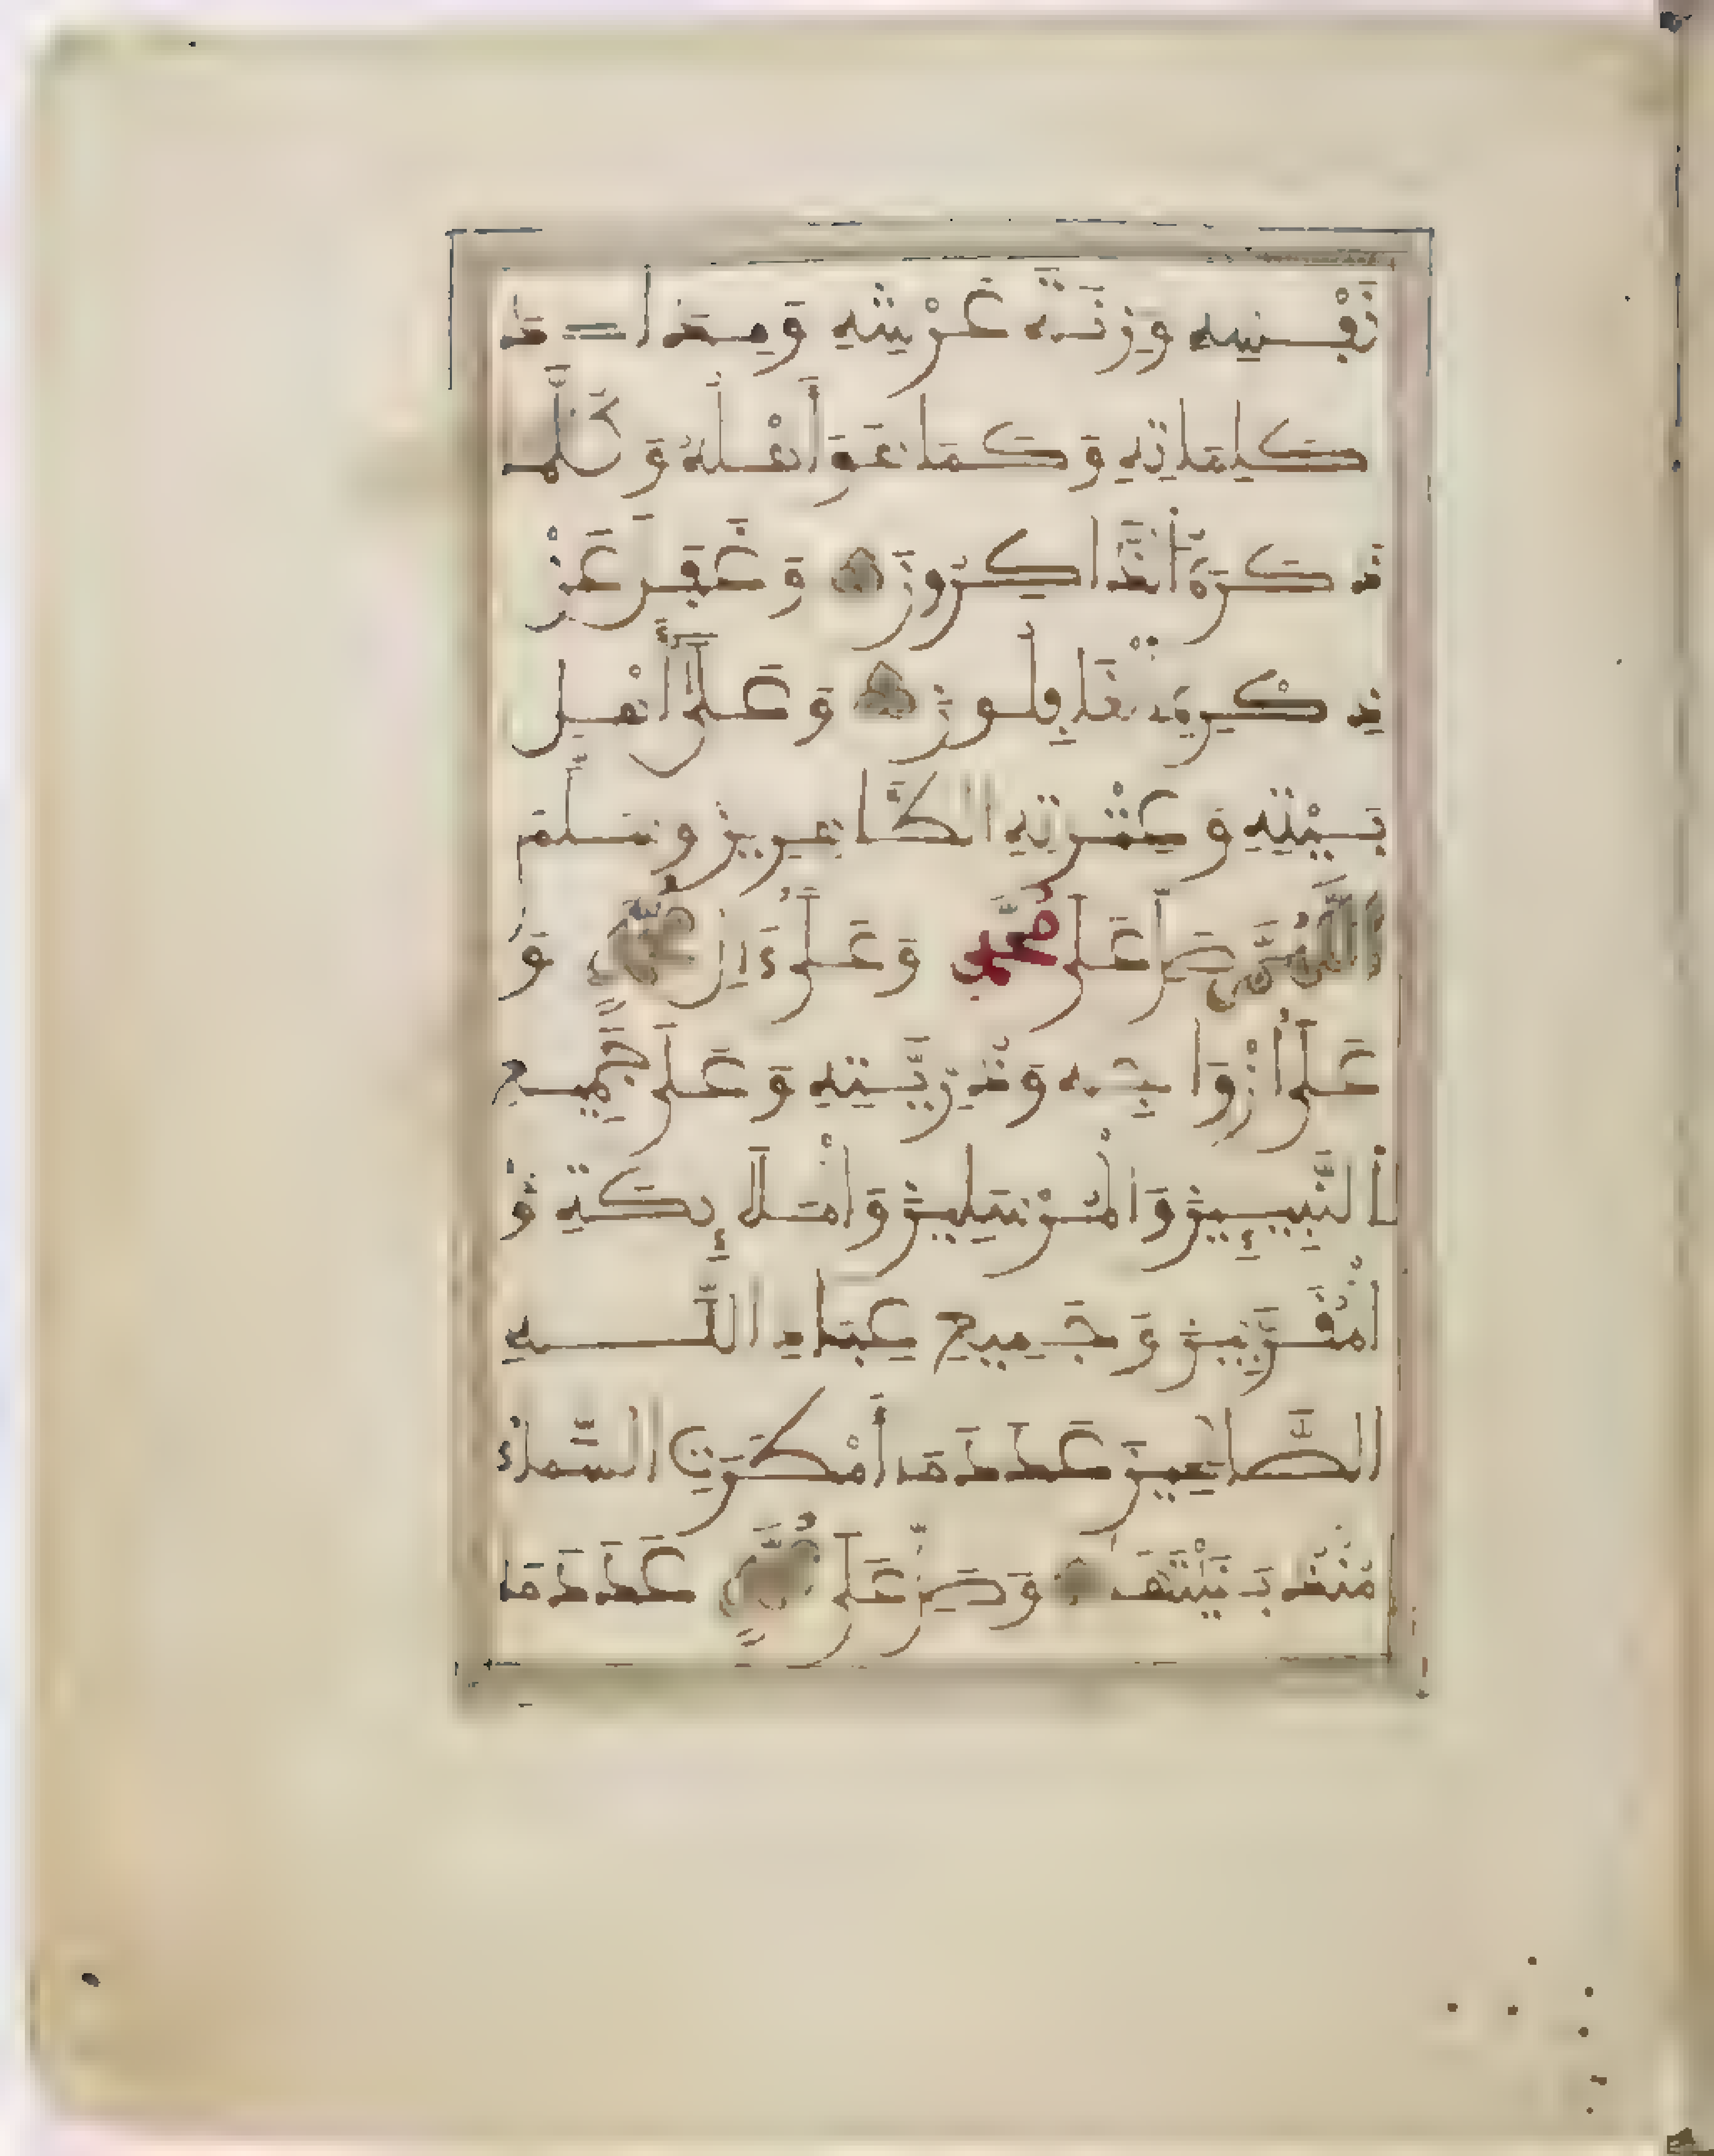 نَفْسِهِ وَزِنَةَ عَرْشِهِ وَمِدَادَ
كَلِمَاتِهِ وَكَمَا هُوَ أَهْلُهُ وَكُلَّمَا
ذَكَرَهُ الذَّاكِرُونَ وَغَفَلَ عَنْ
ذِكْرِهِ الْغَافِلُونَ وَعَلَى أَهْلِ
بَيْتِهِ وَعِتْرَتِهِ الطَّاهِرِينَ وَسَلَّمَ
اللَّهُمَّ صَلِّ عَلَى مُحَمَّدٍ وَعَلَى ءَالِ مُحَمَّدٍ وَ
عَلَى أَزْوَاجِهِ وَذُرِّيَّتِهِ وَعَلَى جَمِيعِ
النَّبِيـِٕينَ وَالْمُرْسَلِينَ وَالْمَلَائِكَةِ وَ
الْمُقَرَّبِينَ وَجَمِيعِ عِبَادِ اللَّهِ
الصَّالِحِينَ عَدَدَ مَا أَمْطَرَتِ السَّمَاءُ
مُنْذُ بَنَيْتَهَا وَصَلِّ عَلَى مُحَمَّدٍ عَدَدَ مَا